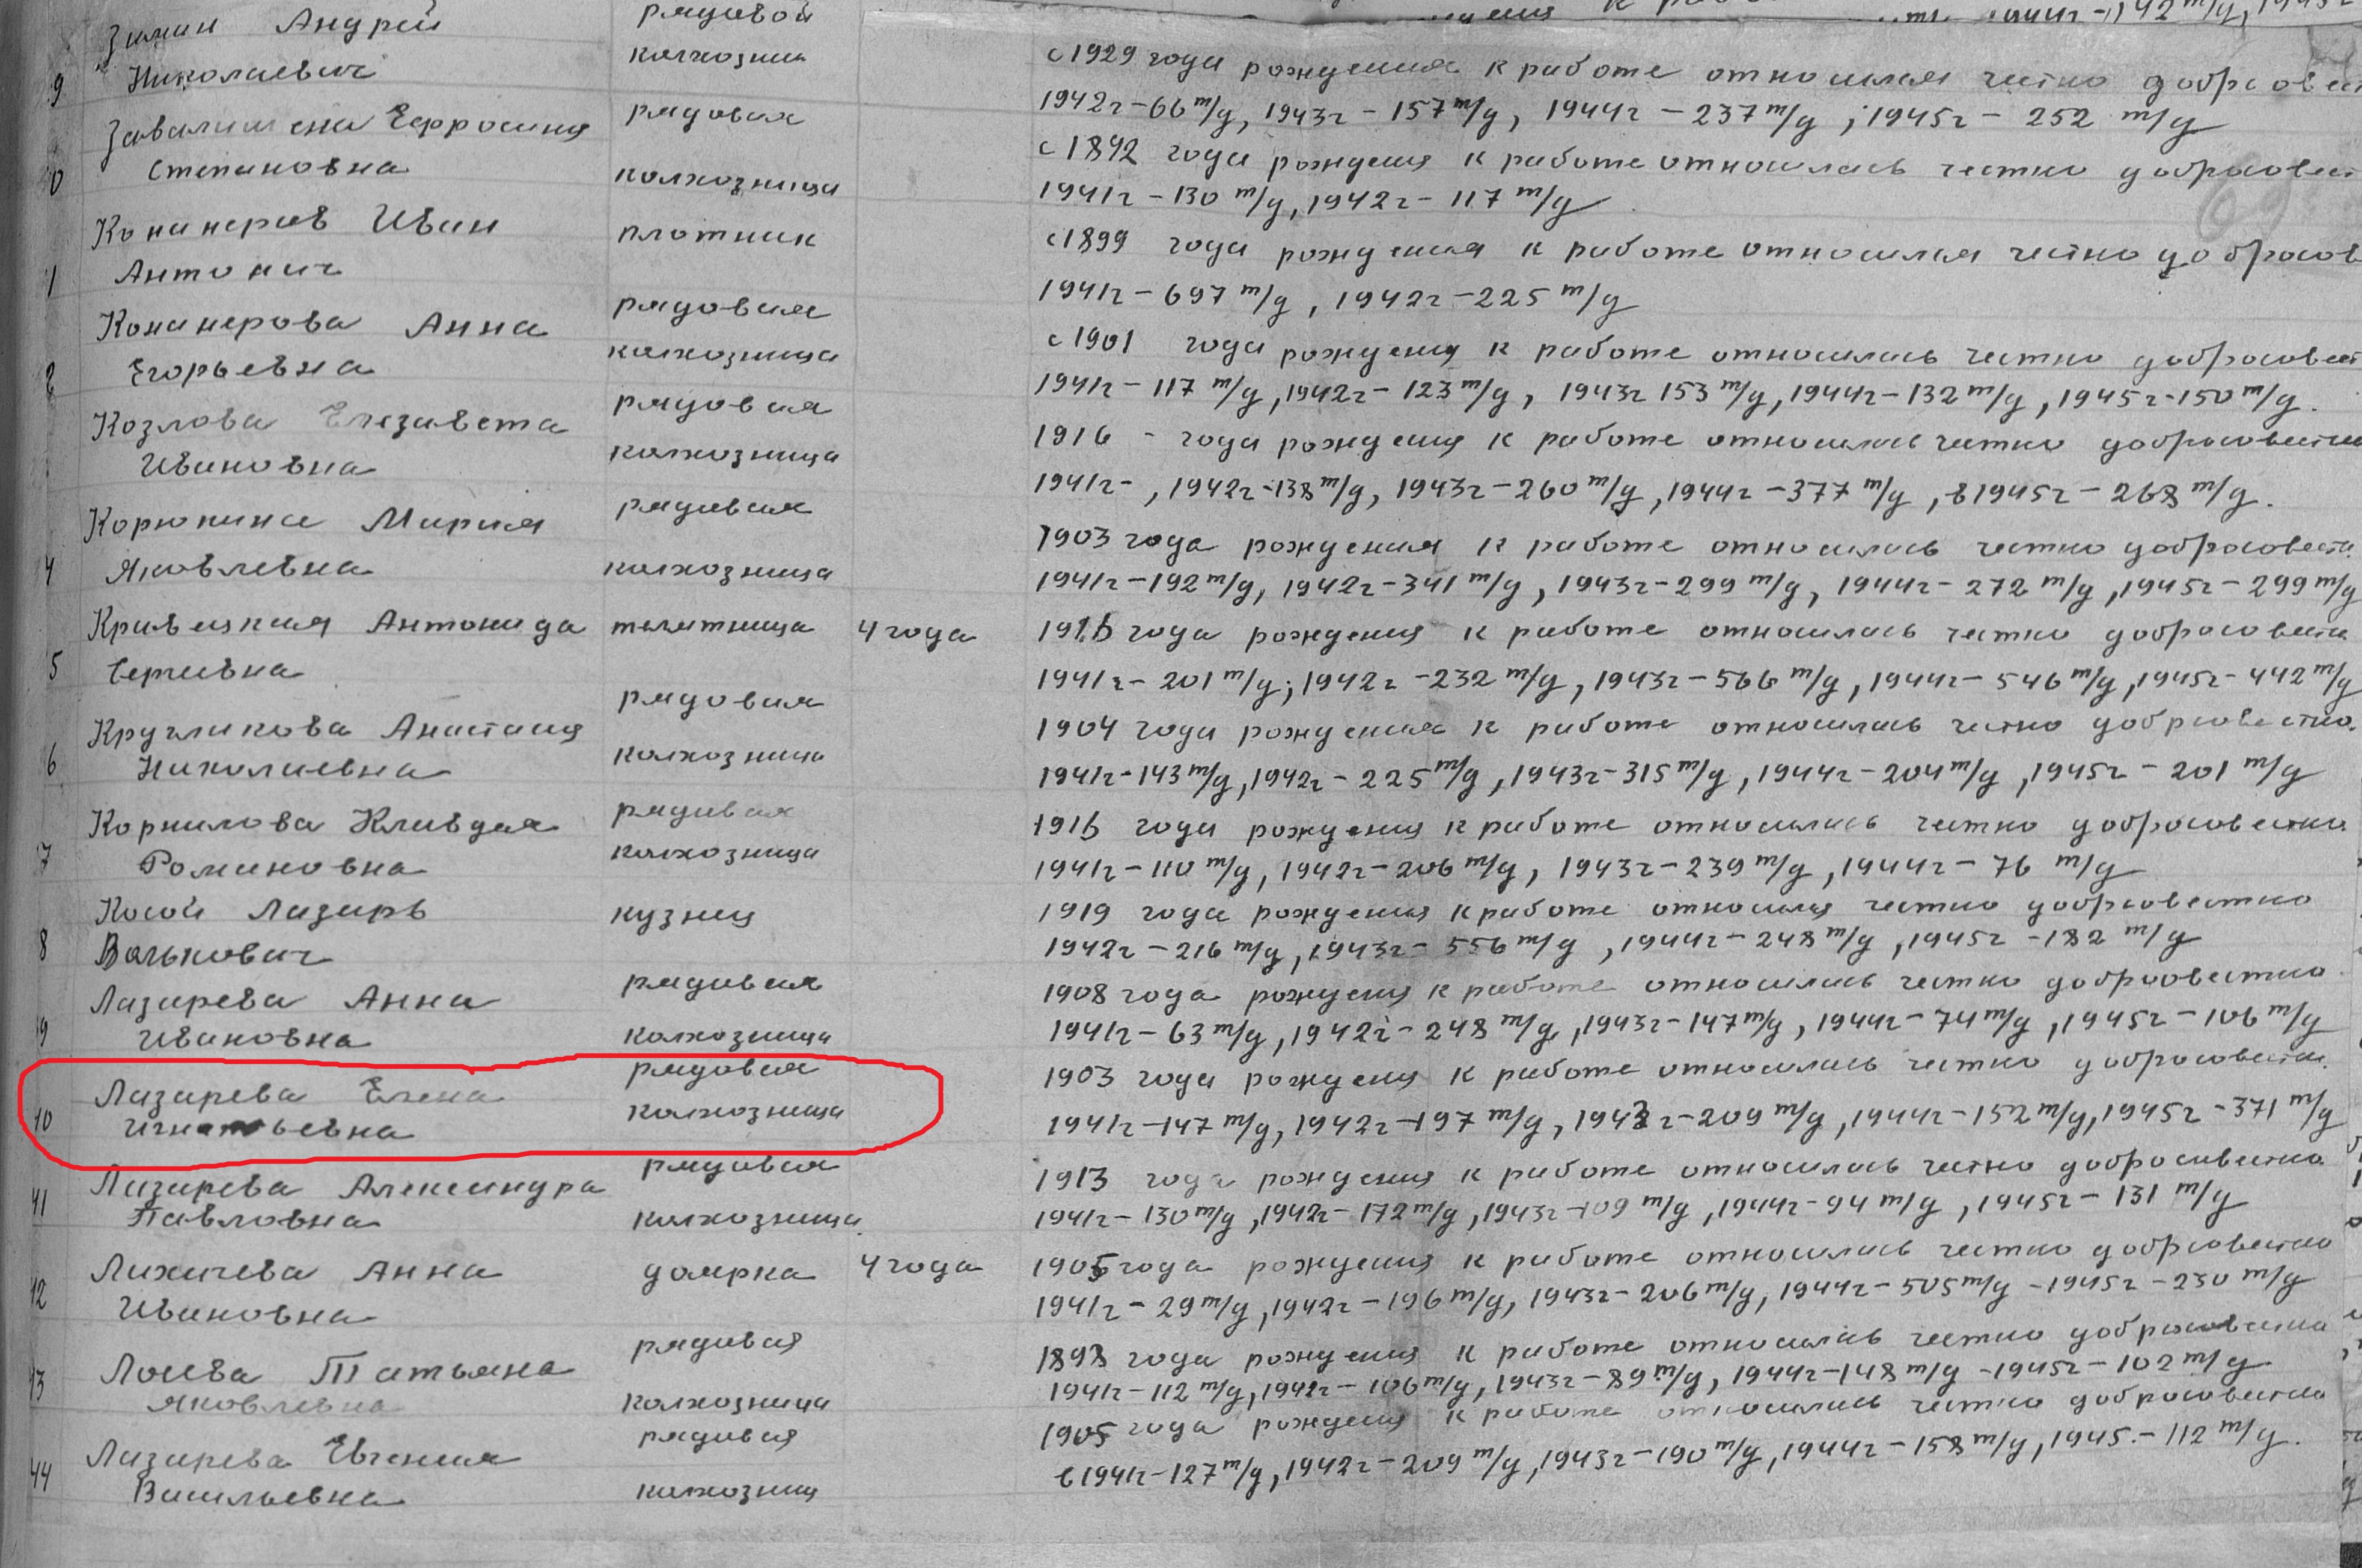 Зимин Андрей рядовой
9 Николаевич колхозник с 1929 года рождения к работе относился честно добросовест
1942г-66 т/д, 1943г-157 т/д, 1944г-237 т/д; 1945г-252 т/д
Завалишена Ефросиния рядовая с 1892 года рождения к работе относилась честно добросовест
0 Степановна колхозница 1941г-130 т/д, 1942г-117 т/д
Конанеров Иван плотник с 1899 года рождения к работе относился честно добросов
1 Антонич 1941г-697 т/д, 1942г-225 т/д
Конанерова Анна рядовая с 1901 года рождения к работе относилась честно добросовест
2 Егорьевна колхозница 1941г-117 т/д, 1942г-123 т/д, 1943г 153 т/д, 1944г-132 т/д, 1945г-150 т/д.
Козлова Елизавета рядовая 1916 - года рождения к работе относилась честно добросовестно
Ивановна колхозница 1941г- , 1942г-138 т/д, 1943г-260 т/д, 1944г-377 т/д, в 1945г-268 т/д.
Корюкина Мария рядовая 1903 года рождения к работе относилась честно добросовестн
4 Яковлевна колхозница 1941г-192 т/д, 1942г-341 т/д, 1943г-299 т/д, 1944г-272 т/д, 1945г-299 т/д
Кривецкая Антонида телятница 4 года года рождения к работе относилась честно добросовестн
5 Сергеевна 1941г-201 т/д; 1942г-232 т/д, 1943г-566 т/д, 1944г-546 т/д, 1945г-442 т/д
Кругликова Анастасия рядовая 1904 года рождения к работе относилась честно добрсовестно.
6 Николаевна колхозница 1941г-143 т/д, 1942г-225 т/д, 1943г-315 т/д, 1944г-204 т/д, 1945г-201 т/д
Корнилова Клавдия рядовая года рождения к работе относилась честно добросовестно
7 Романовна колхозница 1941г-110 т/д, 1942г-206 т/д, 1943г-239 т/д, 1944г-76 т/д
Косой Лазарь кузнец 1919 года рождения к работе относился честно добрсовестно
8 Волькович 1942г-216 т/д, 1943г-556 т/д, 1944г-248 т/д, 1945г-182 т/д
Лазарева Анна рядовая 1908 года рождения к работе относилась честно добрсовестно
9 Ивановна колхозница 1941г-63 т/д, 1942г-248 т/д, 1943г-147 т/д, 1944г-74 т/д, 1945г-106 т/д
Лазарева Елена рядовая 1903 года рождения к работе относилась честно добросовестно.
10 Игнатьевна колхозница 1941г-147 т/д, 1942г-197 т/д, 1943г-209 т/д, 1944г-152 т/д, 1945г-371 т/д
Лазарева Александра рядовая 1913 года рождения к работе относилась честно добросовестно
41 Павловна колхозница 1941г-130 т/д, 1942г-172 т/д, 1943г-109 т/д, 1944г-94 т/д, 1945г-131 т/д
Лихачева Анна доярка 4 года 1905 года рождения к работе относилась честно добрсовестно
12 Ивановна 1941г-29 т/д, 1942г-196 т/д, 1943г-206 т/д, 1944г-505 т/д-1945г-230 т/д
Лосева Татьяна рядовая 1898 года рождения к работе относилась честно добросовестно
43 Яковлевна колхозница 1941г-112 т/д, 1942г-106 т/д, 1943г-89 т/д, 1944г-148 т/д-1945г-102 т/д
Лазарева Евгения рядовая 1905 года рождения к работе относилась честно добросовестно
44 Васильевна колхозниц в 1941г-127 т/д, 1942г-209 т/д, 1943г-190 т/д, 1944г-158 т/д, 1945.-112 т/д.